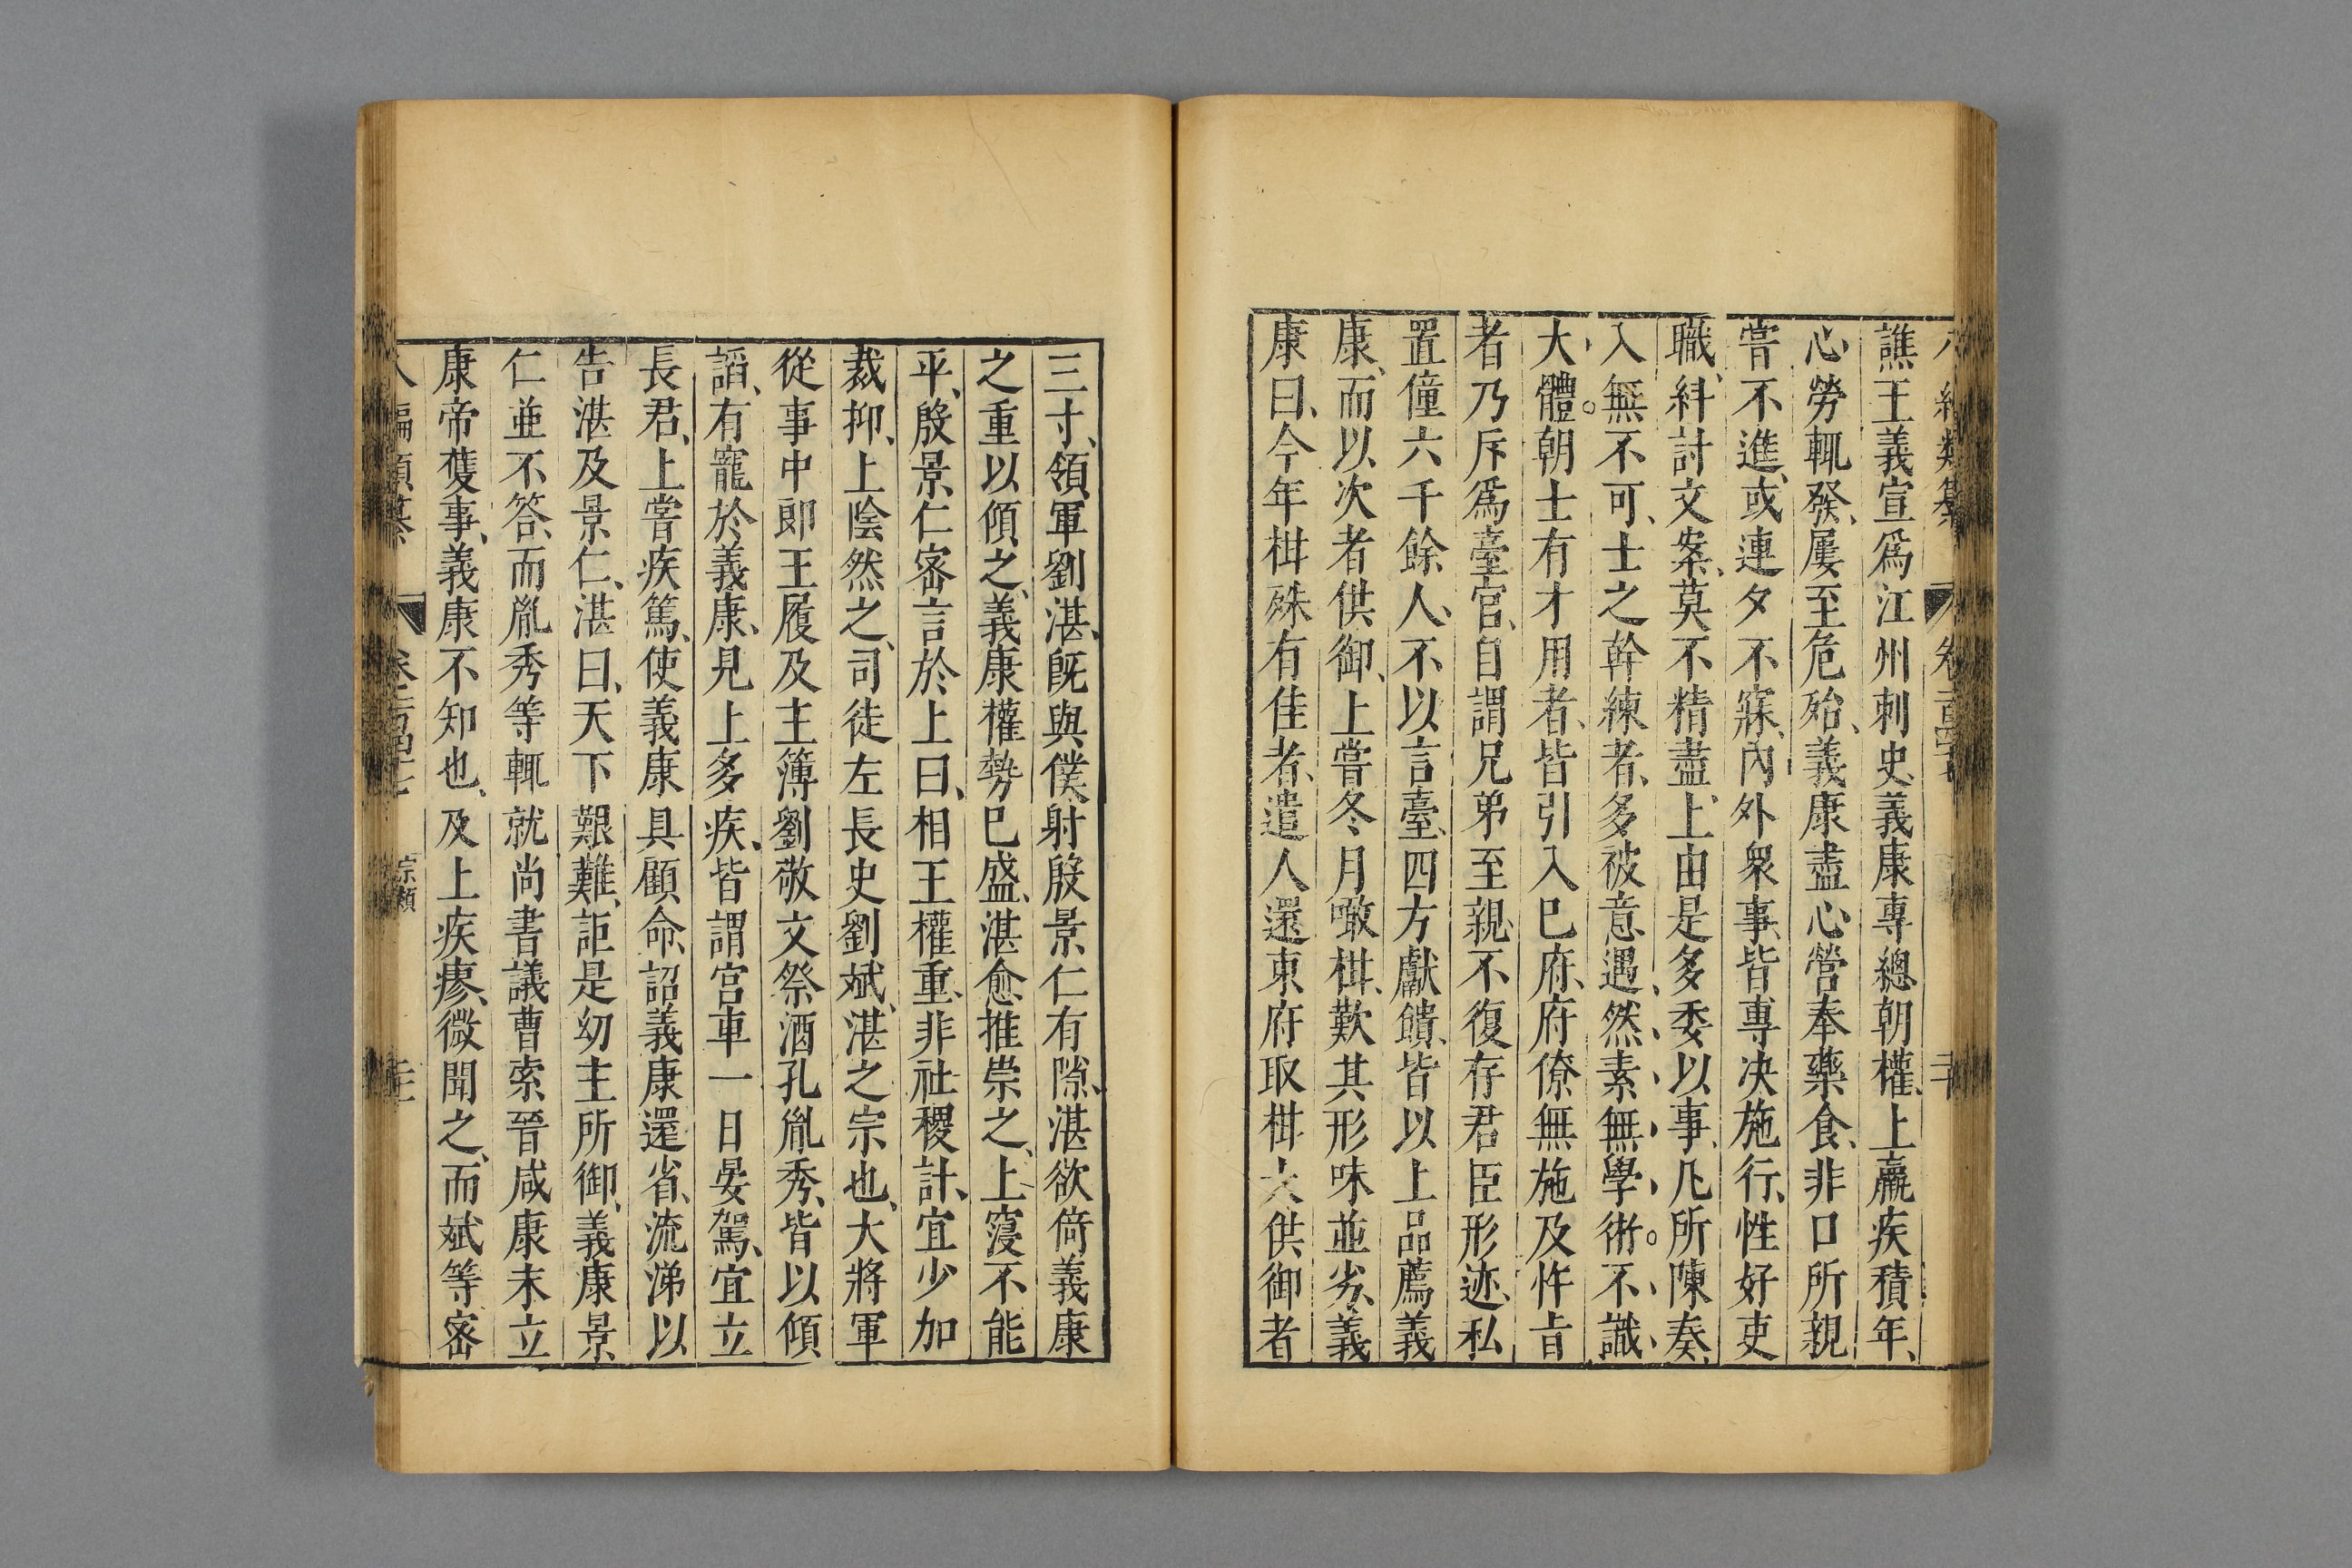 譙王義宣爲江州刺史、義康專總朝權、上羸疾積年、
心勞輒發、屢至危殆、義康盡心營奉藥食、非口所親
嘗不進、或連夕不寐、內外衆事、皆專决施行、性好吏
職、糾討文案、莫不精盡、上由是多委以事、凡所陳奏、
入無不可、士之幹練者、多被意遇、然素無學術。不識
大體。朝士有才用者、皆引入巳府、府僚無施及忤旨
者乃斥爲臺官、自謂兄弟至親、不復存君臣形迹、私
置僮六千餘人、不以言臺、四方獻饋、皆以上品薦義
康、而以次者供御、上嘗冬月噉柑、歎其形味並劣、義
康曰、今年柑殊有佳者、遣人還東府取柑大供御者
三寸、領軍劉湛、旣與僕射殷景仁有隙、湛欲倚義康
之重以傾之、義康權勢巳盛、湛愈推崇之、上寖不能
平、殷景仁密言於上曰、相王權重、非社稷計、宜少加
裁抑、上陰然之、司徒左長史劉斌、湛之宗也、大將軍
從事中郎王履及主簿劉敬文祭酒孔胤秀、皆以傾
謟、有寵於義康、見上多疾、皆謂宮車一日晏駕、宜立
長君、上嘗疾篤、使義康具顧命、詔義康還省、流涕以
告湛及景仁、湛曰、天下艱難、詎是幼主所御、義康景
仁並不答、而胤秀等輒就尚書議曹索晉咸康末立
康帝舊事、義康不知也、及上疾瘳、微聞之、而斌等密